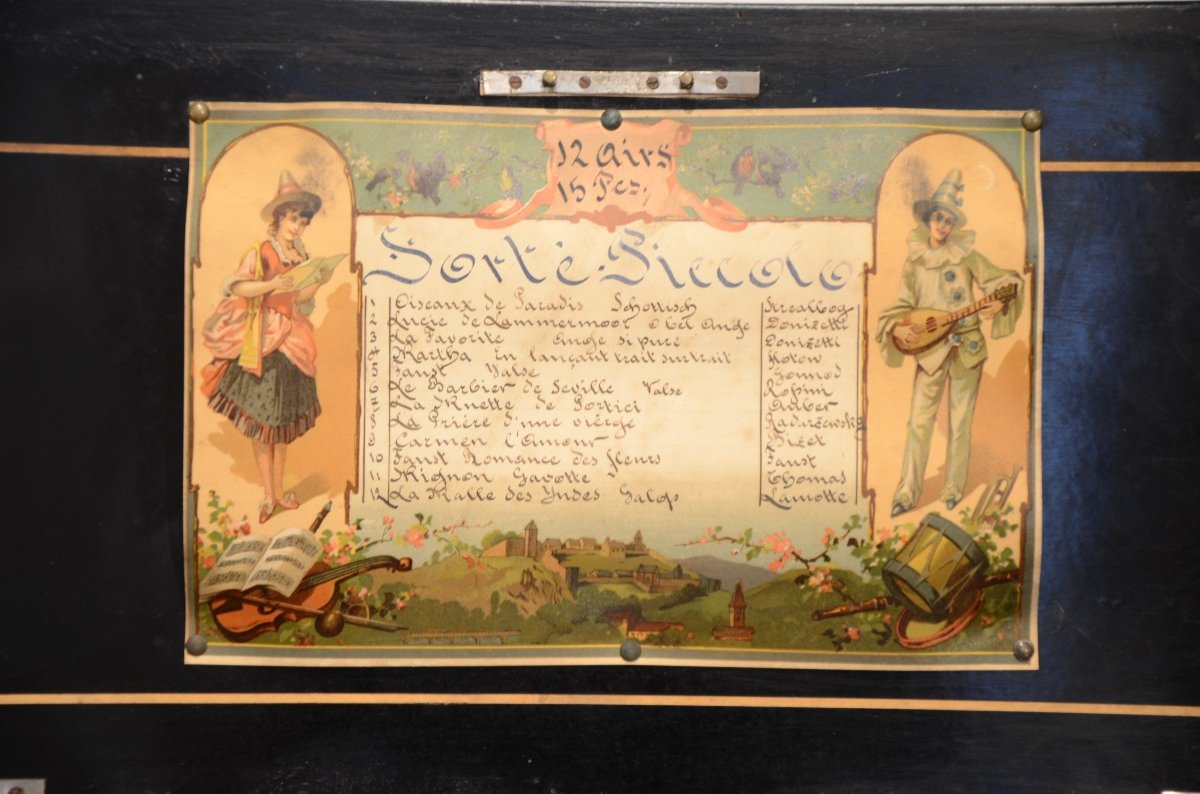 12 Airs
15 Pcz.
Sort'é. Piccolo
1 Oiseaux de Paradis Schottisch Strealbog
2 Lucie de Lammermoor O bel Ange Donizetti
3 La Favorite Ange si pure Donizetti
4 Martha En lançant trait sur trait Flotow
5 Faust Valse Gounod
6 Le Barbier de Seville Valse Roſsini
7 La Muette de Portici Auber
8 La Prière d'une vierge Badarzewska
9 Carmen l'Amour Bizet
10 Faust Romance des fleurs Faust
11 Mignon Gavotte Thomas
12 La Malle des Indes Galop Lamotte